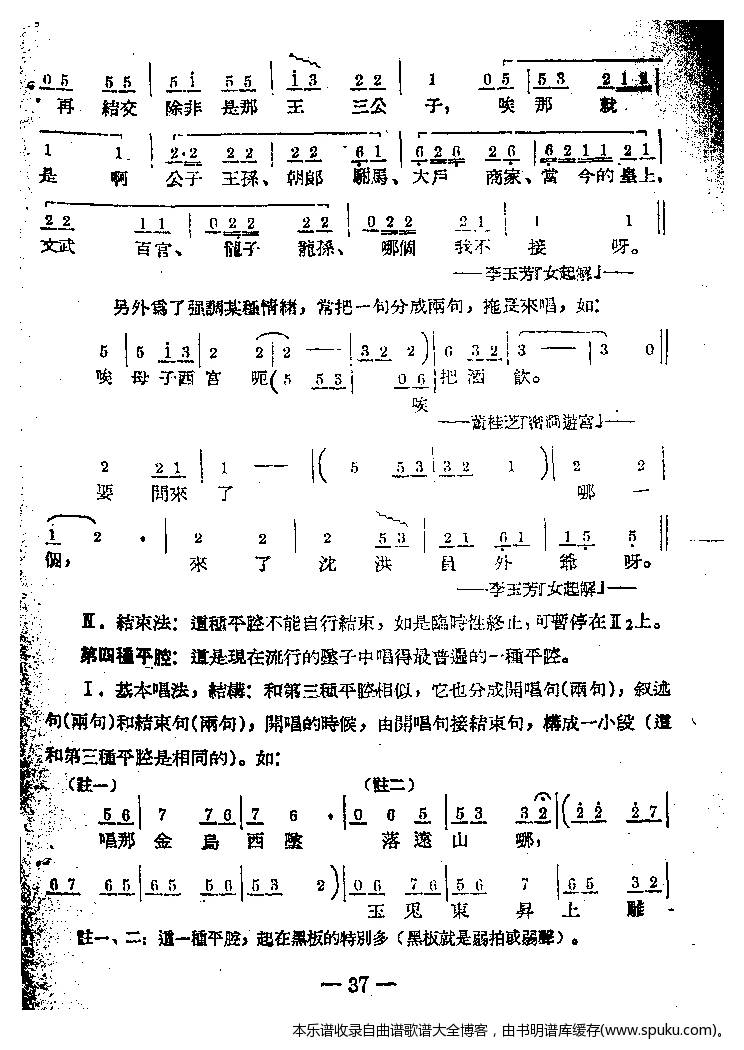 0 5 5 5 | 5 i 5 5 | i 3 2 2 | 1 0 5 | 5 3 2 1 2
再 結交 除非 是那 王 三公 子，唉那 就
1 1 | 2·2 2 2 | 2 2 6 1 | 6 2 6 2 6 | 6 2 1 2 2 1
是 啊 公子 王孫、朝郎 駙馬、大戶 商家、當 今的 皇上，
2 2 1 1 | 0 2 2 2 2 | 0 2 2 2 2 1 | 1 1 ‖
文武 百官、龍子 龍孫、哪個 我不 接 呀。
——李玉芳『女起解』——
另外爲了强調某種情緒，常把一句分成兩句，拖長來唱，如：
5 | 5 i 3 | 2 2 | 2 — | 3 2 2 ) | 6 3 2 | 3 — | 3 0 ‖
唉 母 子西 宮 呃 ( 5 5 3 | 0 6 把 酒 飲。
唉
——董桂芝『 遊宮』——
2 2 1 | 1 — | ( 5 5 3 | 3 2 1 ) | 2 2
要 問來 了 哪 一
1 2 · | 2 2 | 2 5 3 | 2 1 6 1 | 1 5 5 ‖
個， 來 了 沈 洪 員 外 爺 呀。
——李玉芳『女起解』——
Ⅱ．結束法：這種平腔不能自行結束，如是臨時性終止，可暫停在Ⅱ2上。
第四種平腔：這是現在流行的墜子中唱得最普遍的一種平腔。
Ⅰ．基本唱法，結構：和第三種平腔相似，它也分成開唱句(兩句)，叙述
句(兩句)和結束句(兩句)，開唱的時候，由開唱句接結束句，構成一小段（這
和第三種平腔是相同的）。如：
（註一） （註二）
5 6 | 7 7 6 | 7 6 6 · | 0 6 5 | 5 3 3 2 | ( 2 2 2 7 |
唱那 金 烏 西 墜 落 遠 山 哪，
6 7 6 5 | 6 5 5 6 | 5 3 2 ) | 0 6 7 6 | 5 6 7 | 6 5 3 2 |
玉 兎 東 昇 上 雕
註一、二：這一種平腔，起在黑板的特別多（黑板就是弱拍或弱聲）。
— 37 —
本乐谱收录自曲谱歌谱大全博客，由书明谱库缓存(www.spuku.com)。